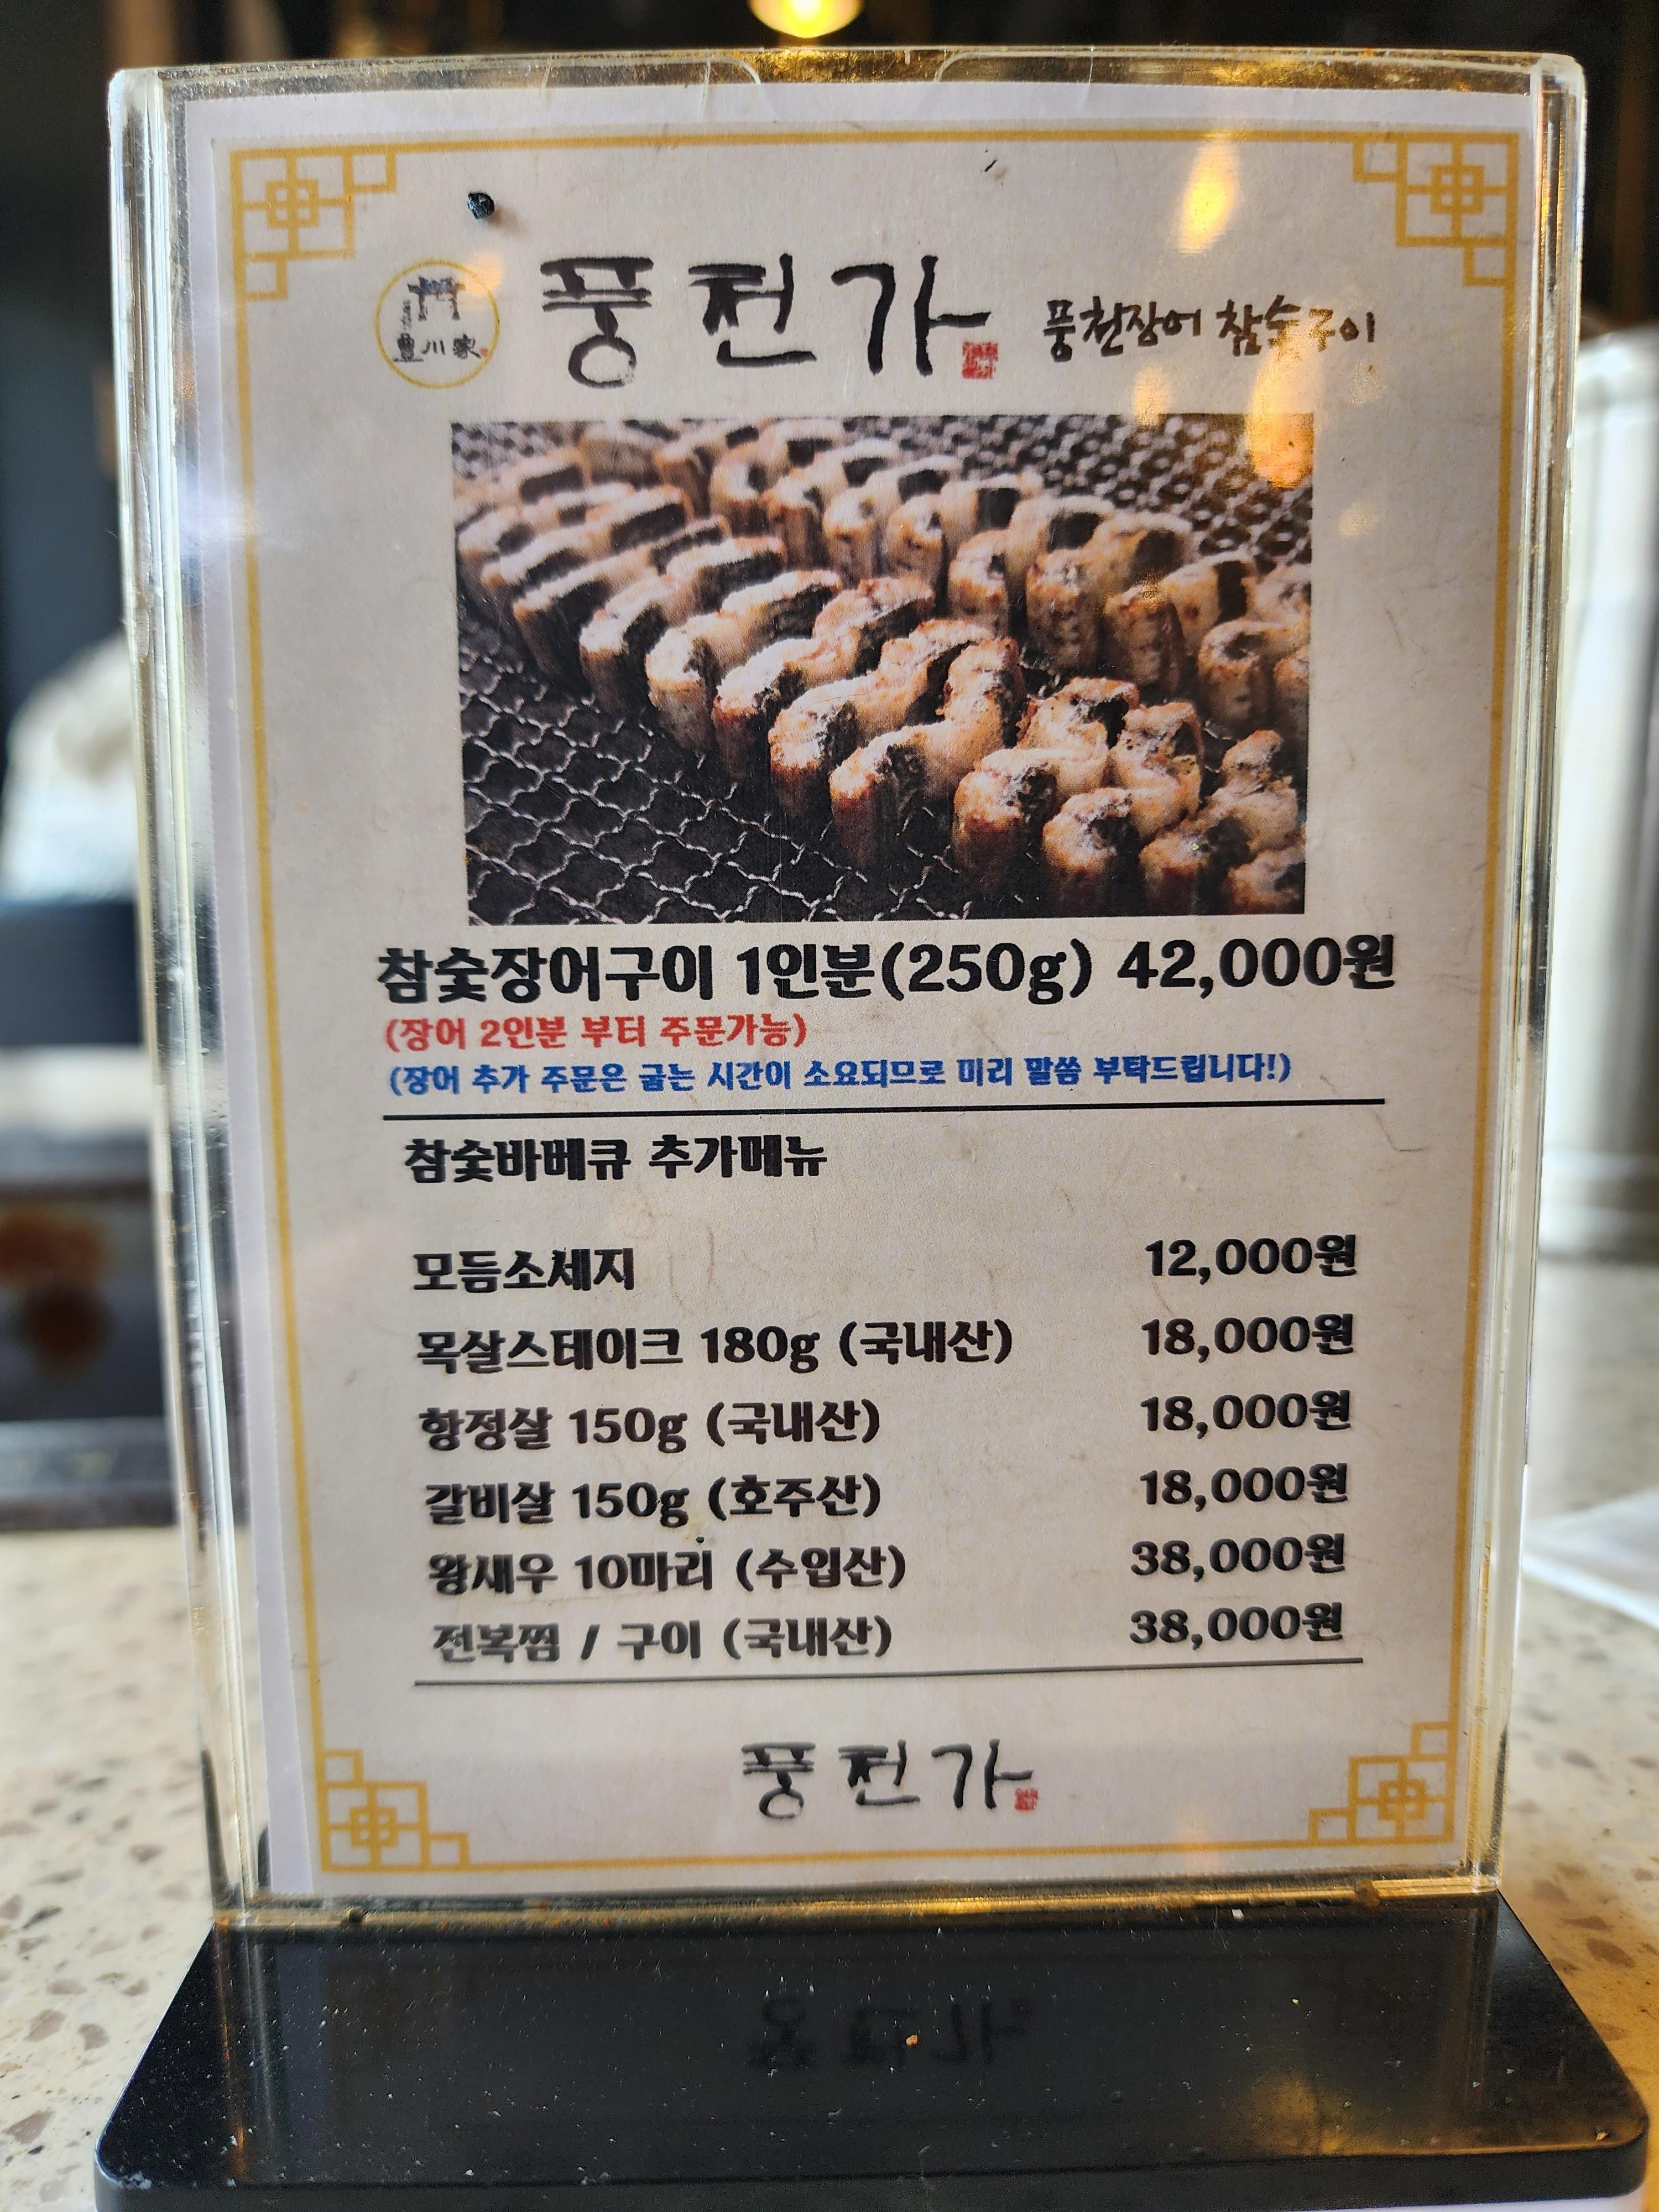 豊川家
풍천가 풍천장어 참숯구이
참숯장어구이 1인분(250g) 42,000원
(장어 2인분 부터 주문가능)
(장어 추가 주문은 굽는 시간이 소요되므로 미리 말씀 부탁드립니다!)
참숯바베큐 추가메뉴
모듬소세지 12,000원
목살스테이크 180g (국내산) 18,000원
항정살 150g (국내산) 18,000원
갈비살 150g (호주산) 18,000원
왕새우 10마리 (수입산) 38,000원
전복찜 / 구이 (국내산) 38,000원
풍천가